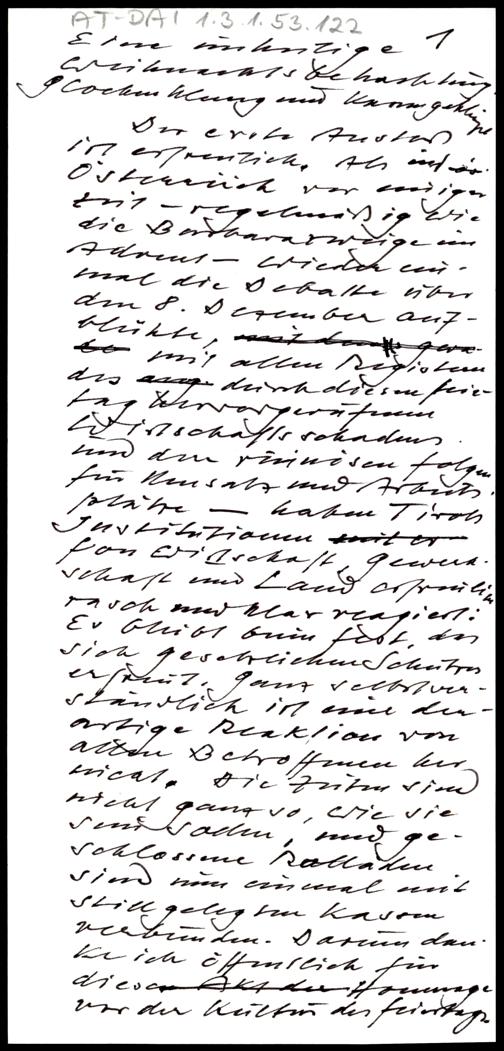 AT-DAI 1.3.1.53.122
1
Eine unheilige
Weihnachtsbetrachtung
Glockenklang und Kassengeklingel
Der erste Anstoß
ist erfreulich. Als
Österreich vor einiger
Zeit – regelmäßig wie
die Barbarazweige im
Advent – wieder ein-
mal die Debatte über
den 8. Dezember auf-
blühte,
mit allen Registern
des durch diesen Feier-
tag hervorgerufenen
Wirtschaftsschadens
und den ruinösen Folgen
für Umsatz und Arbeits-
plätze – haben Tirols
Institutionen
von Wirtschaft, Gewerk-
schaft und Land erfreulich
rasch und klar reagiert:
Es bleibt beim Fest, das
sich gesetzlichen Schutzes
erfreut. Ganz selbstver-
ständlich ist eine der-
artige Reaktion von
allen Betroffenen her
nicht. Die Zeiten sind
nicht ganz so, wie sie
sein sollen, und ge-
schlossene Rolläden
sind nun einmal mit
stillgelegten Kassen
verbunden. Darum dan-
ke ich öffentlich für
diese Hommage
vor der Kultur des Feiertags